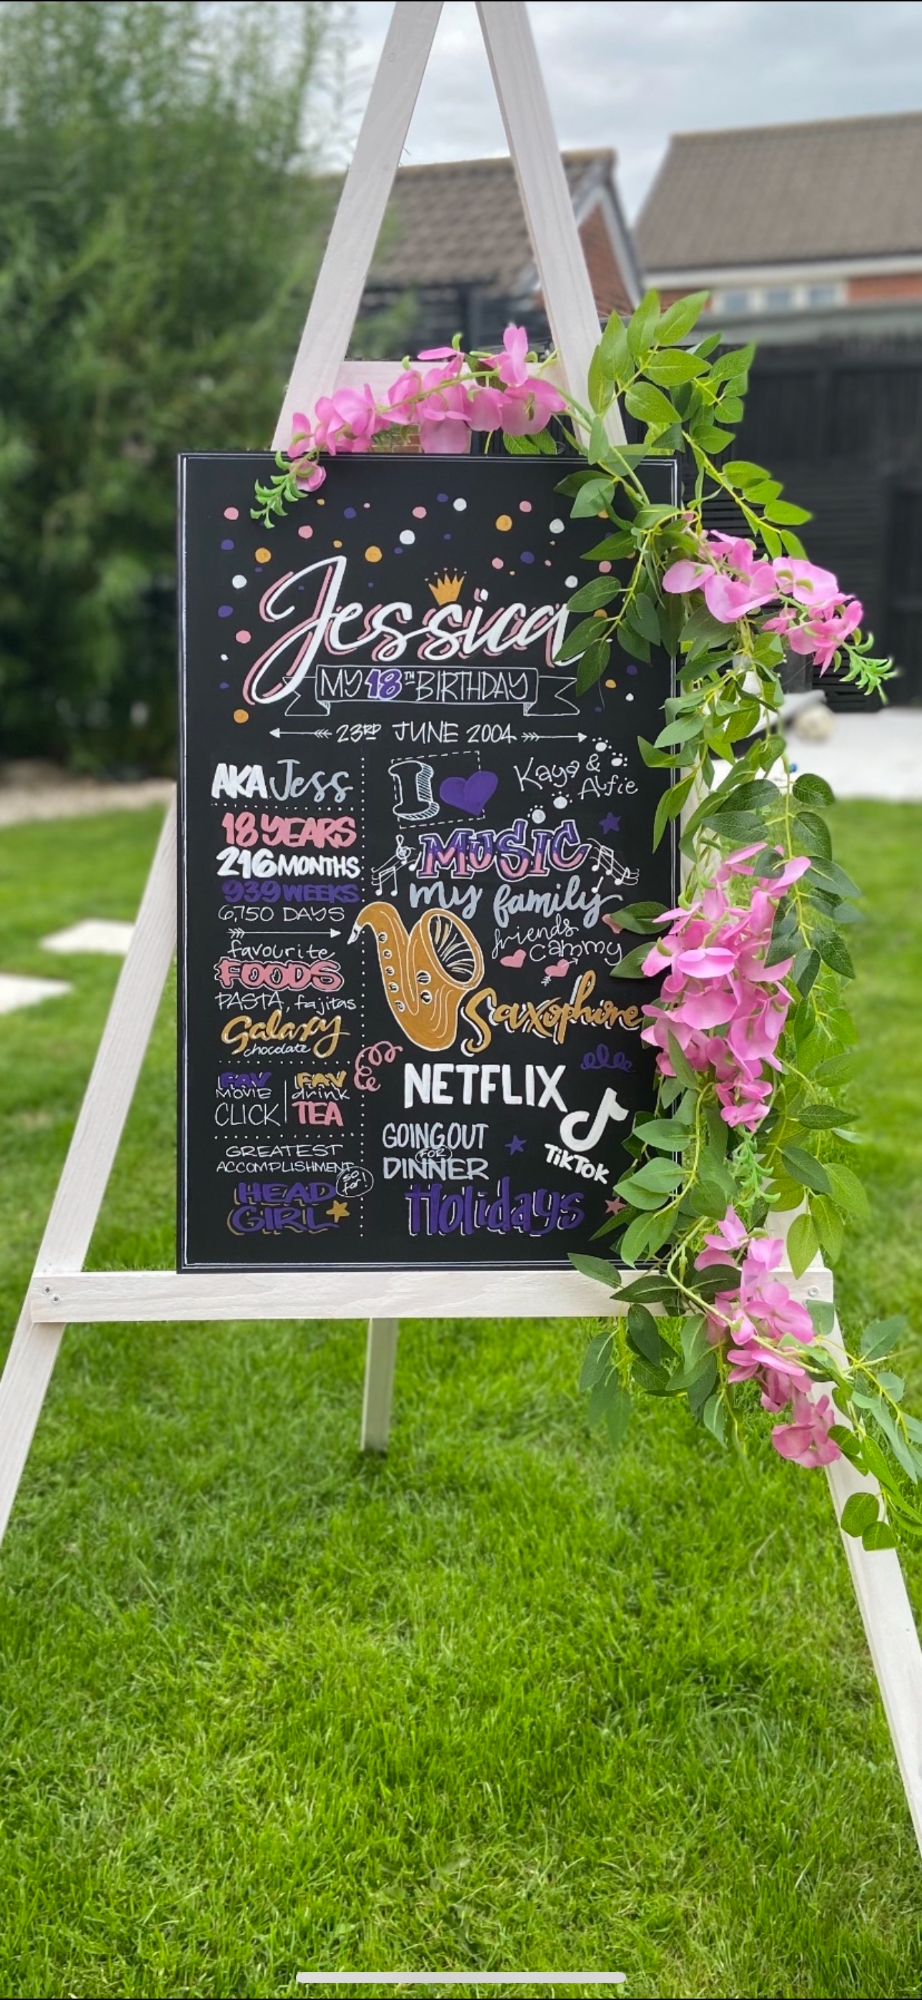 Jessica
MY 18TH BIRTHDAY
23RD JUNE 2004
AKA Jess
18 YEARS
216 MONTHS
939 WEEKS
6,750 DAYS
favourite
FOODS
PASTA, fajitas
Galaxy
chocolate
FAV
MOVIE
CLICK
FAV
drink
TEA
GREATEST
ACCOMPLISHMENT
so
far!
HEAD
GIRL
I
Kaya &
Alfie
MUSIC
my family
friends
cammy
Saxophone
NETFLIX
GOING OUT
FOR
DINNER
TikTok
Holidays